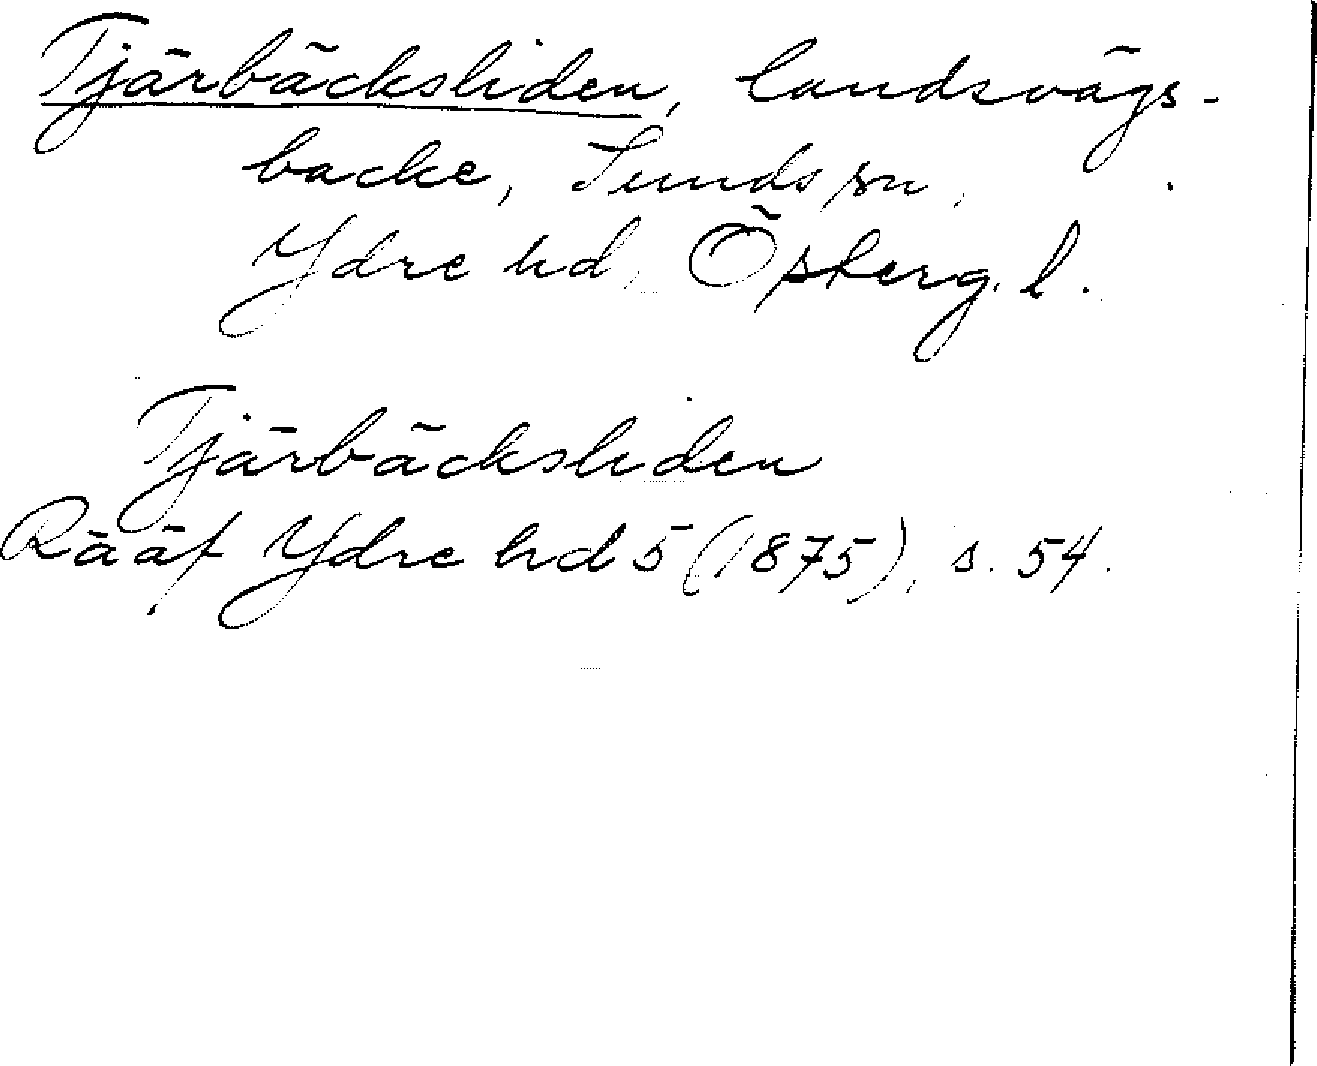 Tjärbäcksliden, landsvägs-
backe, Sunds sn,
Ydre hd, Österg. l.
Tjärbäcksliden
Rääf Ydre hd 5 (1875), s. 54.